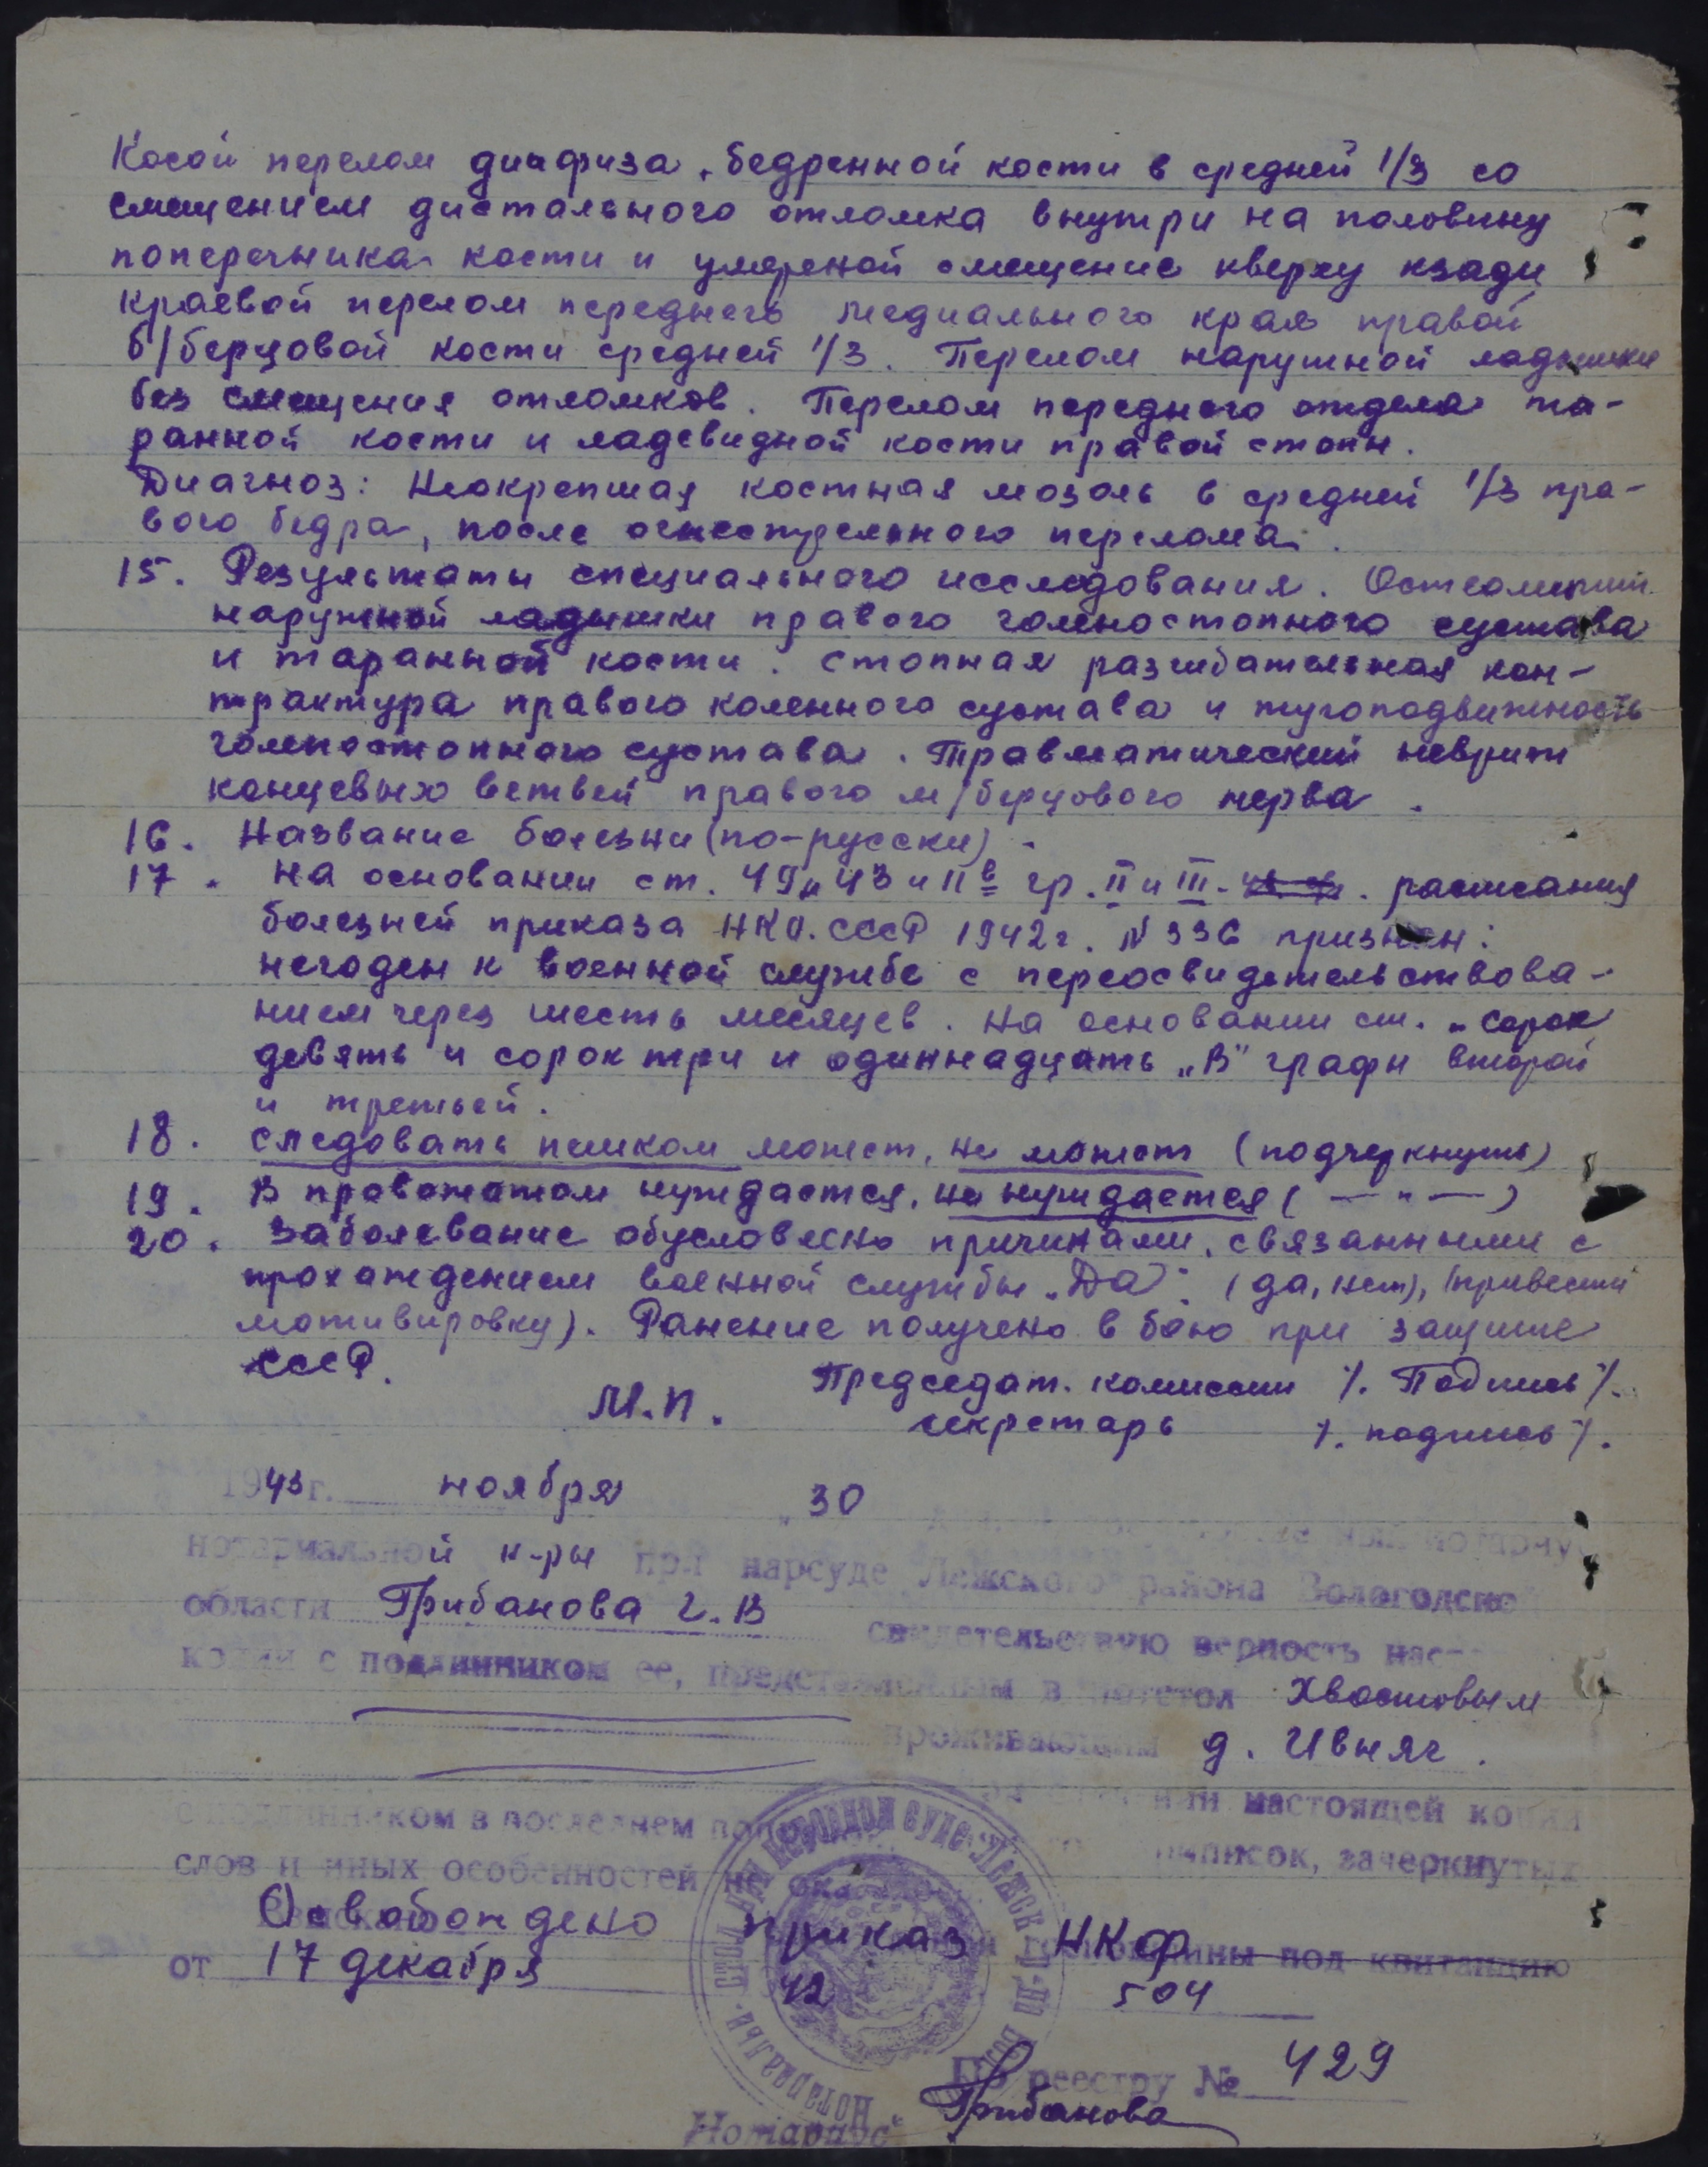 Косой перелом диафиза, бедренной кости в средней 1/3 со
смещением дистального отломка внутри на половину
поперечника кости и умереной смещение кверху кзади,
краевой перелом переднего медиального края правой
б/берцовой кости средней 1/3. Перелом наружной ладыжки
без смещения отломков. Перелом переднего отдела та-
ранной кости и ладевидной кости правой стопы.
Диагноз: Неокрепшая костная мозоль в средней 1/3 пра-
вого бедра, после огнестрельного перелома.
15. Результаты специального исследования. Остеомиэлит
наружной ладыжки правого голеностопного сустава
и таранной кости. Стопная разгибательная кон-
трактура правого коленного сустава и тугоподвижность
голеностопного сустава. Травматический неврит
концевых ветвей правого м/берцового нерва.
16. Название болезни (по-русски).
17. На основании ст. 49, 43 и 11в гр. II и III. расписания
болезней приказа НКО. СССР 1942г. №336 признан:
негоден к военной службе с переосвидетельствова-
нием через шесть месяцев. На основании ст. „сорок
девять и сорок три и одиннадцать „В" графы второй
и третьей.
18. следовать пешком может, не может (подчеркнуть)
19. В провожатом нуждается, не нуждается ( — " — )
20. Заболевание обусловлено причинами, связанными с
прохождением военной службы „Да". (да, нет), (привести
мотивировку). Ранение получено в бою при защите
СССР.
М.П. Председат. комиссии /. Подпись /.
секретарь /. подпись /.
1943г. ноября „ 30
нотариальной к-ры при нарсуде Лежского района Вологодской
области Грибанова Г. В свидетельствую верность нас-
копии с подлинником ее, представленным в нотстол Хвостовым
проживающим д. Ивняг.
настоящей копии
с подлинником в последнем
приписок, зачеркнутых
слов и иных особенностей не
Освобождено приказ НКФ под квитанцию
от 17 декабря 42 504
По реестру № 429
Нотариус Грибанова